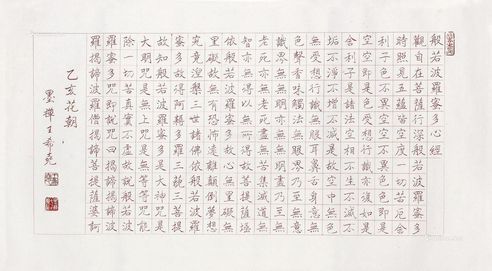 般若波羅蜜多心經
觀自在菩薩行深般若波羅蜜多
時照見五蘊皆空度一切苦厄舍
利子色不異空空不異色色即是
空空即是色受想行識亦復如是
舍利子是諸法空相不生不滅不
垢不淨不增不減是故空中無色
無受想行識無眼耳鼻舌身意無
色聲香味觸法無眼界乃至無意
識界無無明亦無無明盡乃至無
老死亦無老死盡無苦集滅道無
智亦無得以無所得故菩提薩埵
依般若波羅蜜多故心無罣礙無
罣礙故無有恐怖遠離顛倒夢想
究竟涅槃三世諸佛依般若波羅
蜜多故得阿耨多羅三藐三菩提
故知般若波羅蜜多是大神咒是
大明咒是無上咒是無等等咒能
除一切苦真實不虛故說般若波
羅蜜多咒即說咒曰揭諦揭諦波
羅揭諦波羅僧揭諦菩提薩婆訶
乙亥花朝
墨禪王希堯